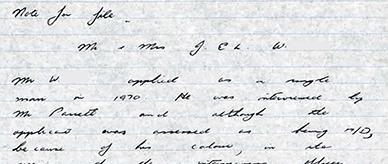 Note for file.
Mr & Mrs J. C L. W.
Mr W. applied as a single
man in 1970 He was interviewed by
Mr Parrett and although the
applicant was assessed as being M/D,
because of his colour, in the
of the interviewing officer